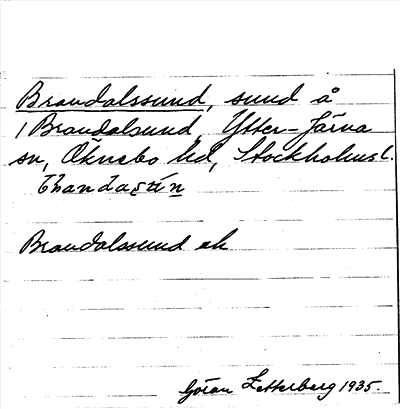 Brandalssund, sund å
1 Brandalsund, Ytter-Järna
sn, Öknebo hd, Stockholms l.
Brandalssund ek
Göran Zetterberg 1935.